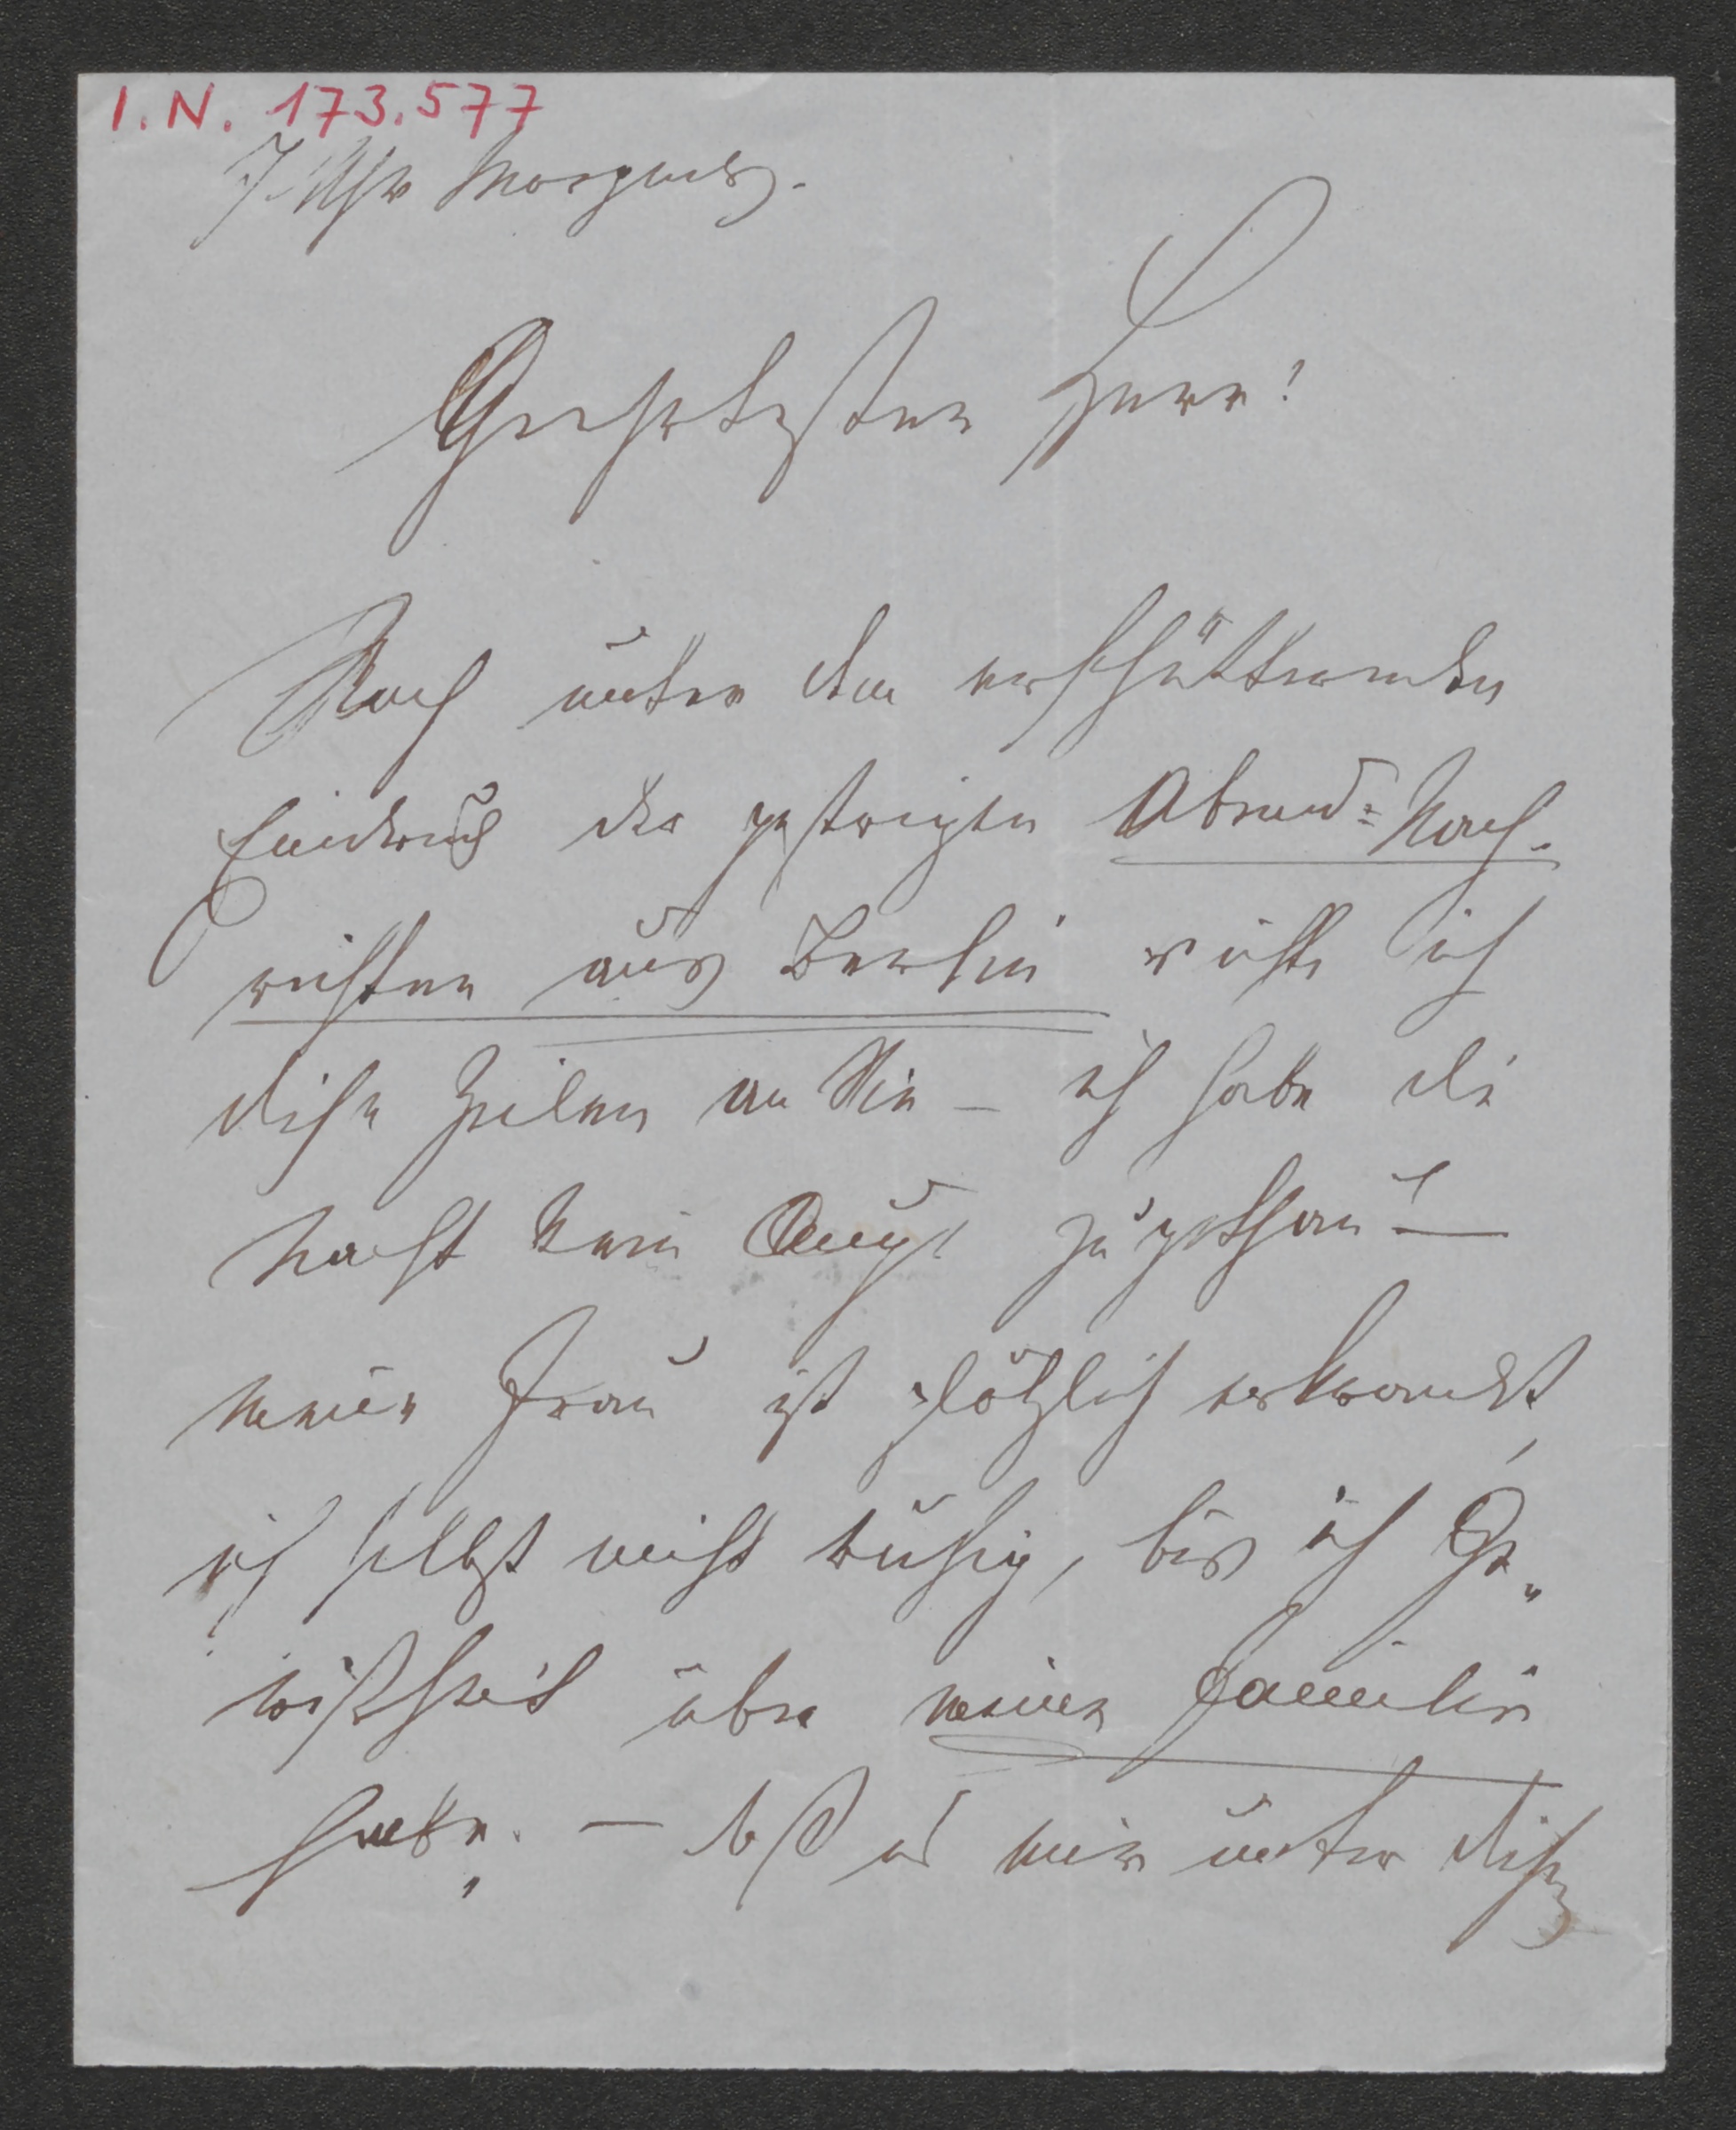 I.N. 173.577
7 Uhr Morgens.
Geehrtester Herr!
Noch unter dem erschütternden
Eindruck der gestrigen Abend-Nach-
richten aus Berlin richte ich
diese Zeilen an Sie – ich habe die
Nacht kein Auge zugethan –
meine Frau ist plötzlich erkrankt,
ich selbst nicht ruhig, bis ich Ge„
wißheit über meine Familie
habe. – daß es mir unter diesen